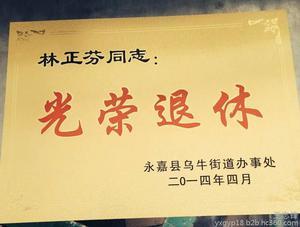 林正芬同志：
光荣退休
永嘉县乌牛街道办事处
二〇一四年四月
yxgyp18.b2b.hc360.com